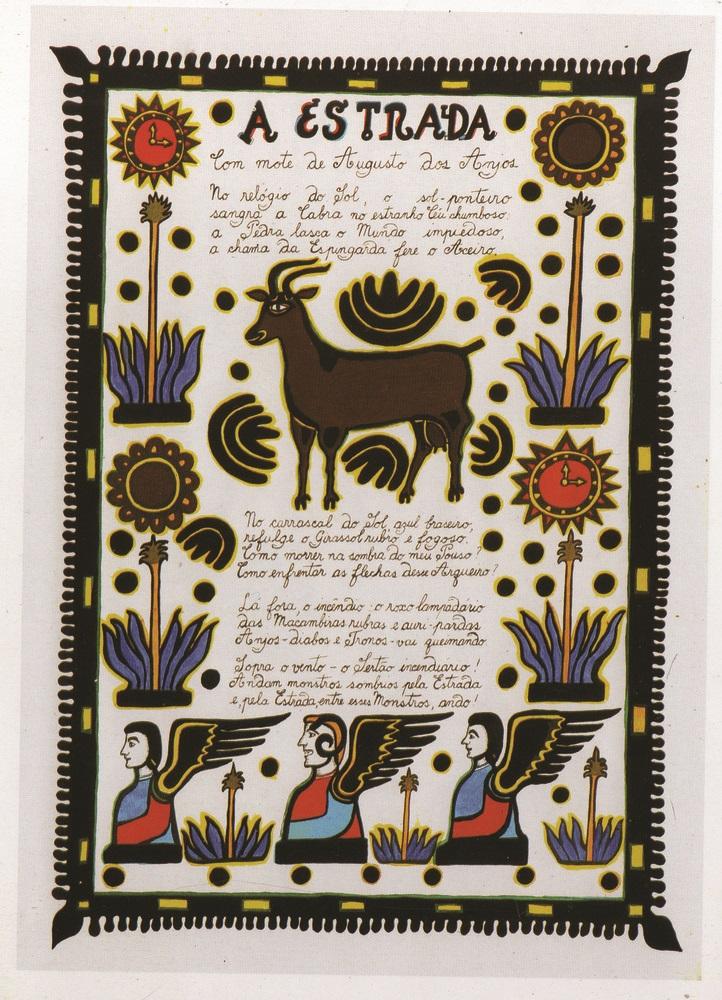 A ESTRADA
Com mote de Augusto dos Anjos
No relógio do Sol, o sol-ponteiro
sangra a Cabra no estranho Céu chumboso:
a Pedra lasca o Mundo impiedoso,
a chama da Espingarda fere o Aceiro.
No carrascal do Sol azul braseiro,
refulge o Girassol rubro e fogoso.
Como morrer na sombra do meu Pouso?
Como enfrentar as flechas desse Arqueiro?
Lá fora, o incêndio: o roxo lampadário
das Macambiras rubras e auri-pardas
Anjos-diabos e Tronos-vai queimando.
Sopra o vento - o Sertão incendiário!
Andam monstros sombrios pela Estrada
e, pela Estrada, entre esses Monstros, ando!